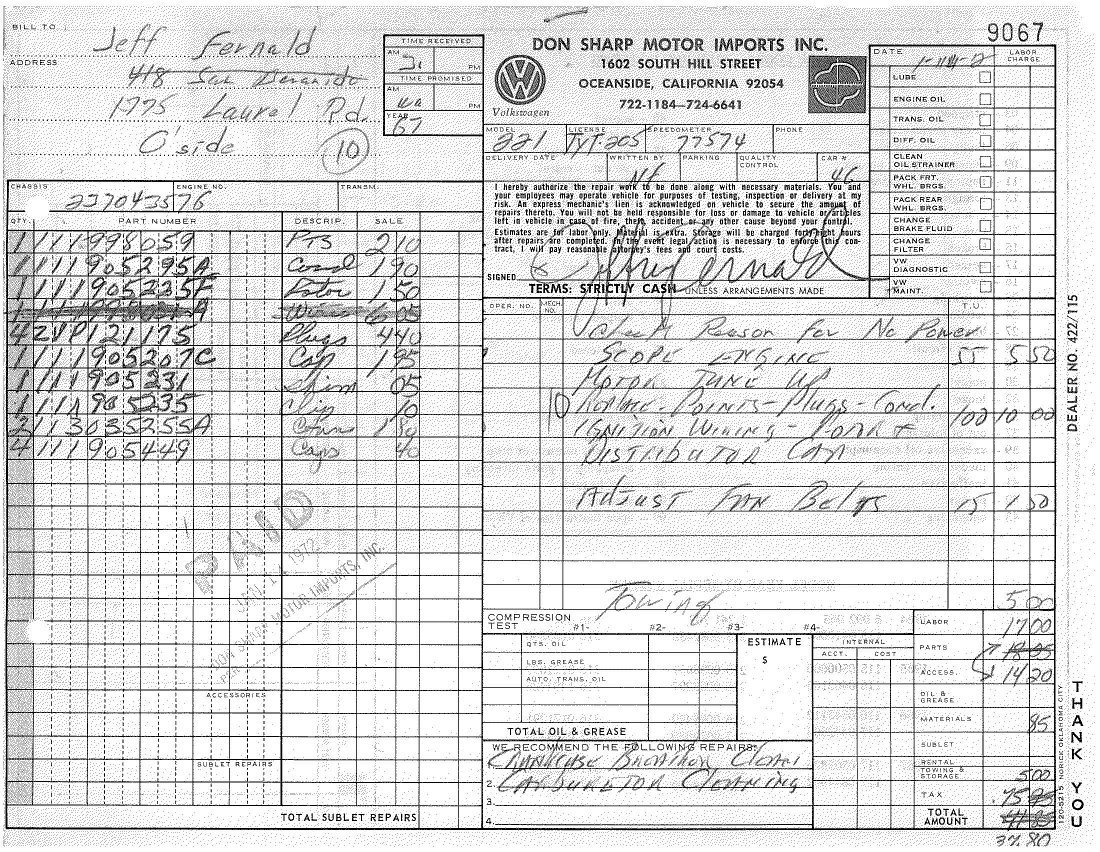 9067
BILL TO Jeff Fernald
ADDRESS 418 San Benardo
1775 Laurel Rd.
O'side
10
TIME RECEIVED
AM PM
TIME PROMISED
AM PM
YEAR
67
DON SHARP MOTOR IMPORTS INC.
1602 SOUTH HILL STREET
OCEANSIDE, CALIFORNIA 92054
722-1184—724-6641
Volkswagen
MODEL 221
LICENSE TYT-205
SPEEDOMETER 77574
PHONE
DELIVERY DATE
WRITTEN BY
PARKING
QUALITY CONTROL
CAR # 46
I hereby authorize the repair work to be done along with necessary materials. You and
your employees may operate vehicle for purposes of testing, inspection or delivery at my
risk. An express mechanic's lien is acknowledged on vehicle to secure the amount of
repairs thereto. You will not be held responsible for loss or damage to vehicle or articles
left in vehicle in case of fire, theft, accident or any other cause beyond your control.
Estimates are for labor only. Material is extra. Storage will be charged forty-eight hours
after repairs are completed. In the event legal action is necessary to enforce this con-
tract, I will pay reasonable attorney's fees and court costs.
SIGNED X Jeffrey Fernald
TERMS: STRICTLY CASH UNLESS ARRANGEMENTS MADE
DATE LABOR CHARGE
LUBE
ENGINE OIL
TRANS. OIL
DIFF. OIL
CLEAN OIL STRAINER
PACK FRT. WHL. BRGS.
PACK REAR WHL. BRGS.
CHANGE BRAKE FLUID
CHANGE FILTER
VW DIAGNOSTIC
VW MAINT.
CHASSIS 237043576
ENGINE NO.
TRANSM.
QTY. PART NUMBER DESCRIP. SALE
1 111998059 PTS 2 10
1 111905295A Cond 1 90
1 111905235F Rotor 1 50
1 111998031A Wires 6 05
4 ZVP121175 Plugs 4 40
1 111905207C Cap 1 95
1 111905231 Shim 05
1 111905235 10
2 113035255A Conn 1 80
4 111905449 Caps 40
PAID
JAN 14 1972
DON SHARP MOTOR IMPORTS, INC.
PER
ACCESSORIES
SUBLET REPAIRS
TOTAL SUBLET REPAIRS
OPER. NO. MECH. NO. T.U.
Check Reason for No Power
SCOPE ENGINE 55 5 50
MOTOR TUNE UP
10 Replace-Points-Plugs-Cond. 100 10 00
IGNITION Wiring-Rotor +
DISTRIBUTOR CAP
Adjust Fan Belts 15 1 50
Towing 5 00
COMPRESSION TEST #1- #2- #3- #4-
QTS. OIL
LBS. GREASE
AUTO. TRANS. OIL
TOTAL OIL & GREASE
ESTIMATE
$
INTERNAL
ACCT. COST
LABOR 17 00
PARTS 18 25
ACCESS. 14 20
OIL & GREASE
MATERIALS 85
SUBLET
RENTAL TOWING & STORAGE 5 00
TAX .75
TOTAL AMOUNT
37 80
WE RECOMMEND THE FOLLOWING REPAIRS:
1. Crankcase Breather Clean
2. Carburetor Cleaning
3.
4.
DEALER NO. 422/115
120-5215 NORICK OKLAHOMA CITY
THANK YOU